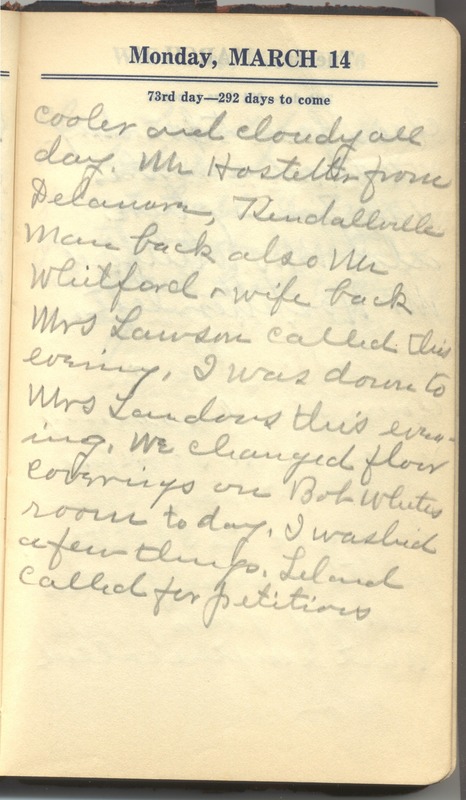 Monday, MARCH 14
73rd day—292 days to come
cooler and cloudy all
day. Mr Hostetler from
Delaware, Kendallville
man back also Mr
Whitford & wife back
Mrs Lawson called this
evening, I was down to
Mrs Landows this even-
ing. We changed floor
coverings on Bob Whites
room today. I washed
a few things. Leland
called for petitions